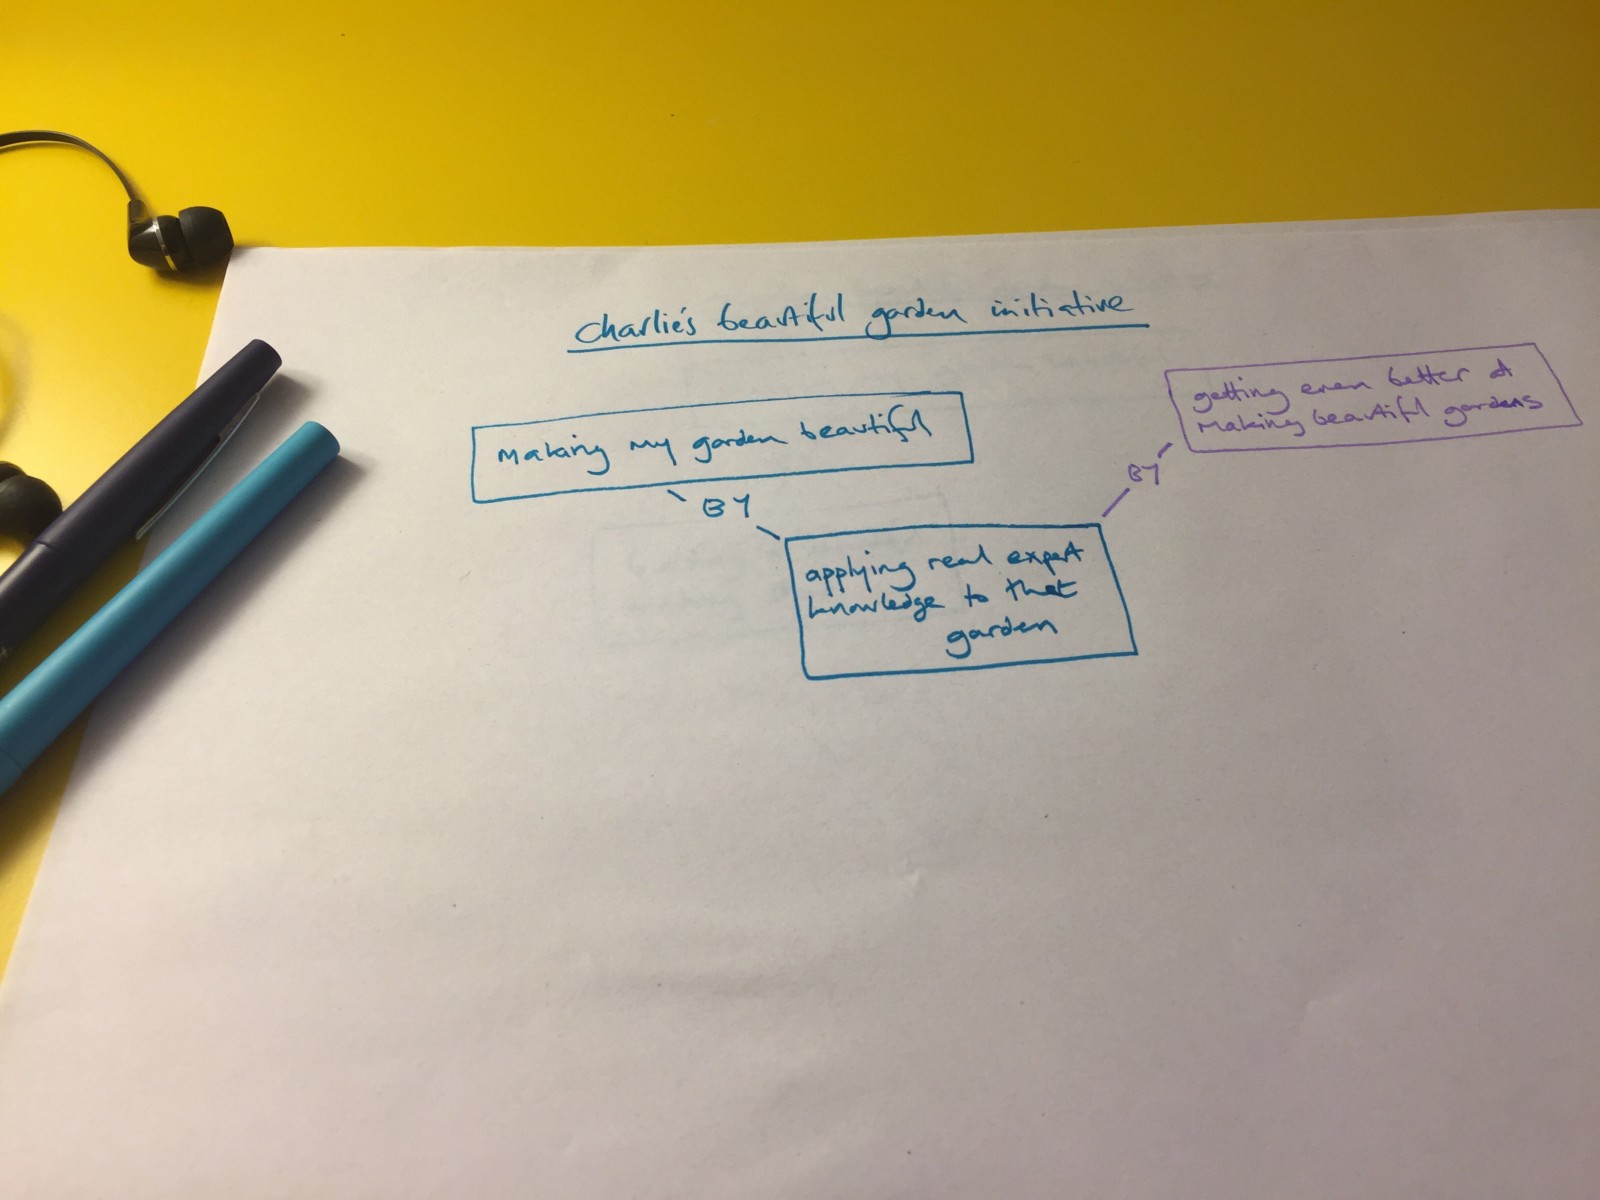 Charlie's beautiful garden initiative
making my garden beautiful
BY
applying real expert
knowledge to that
garden
BY
getting even better at
making beautiful gardens